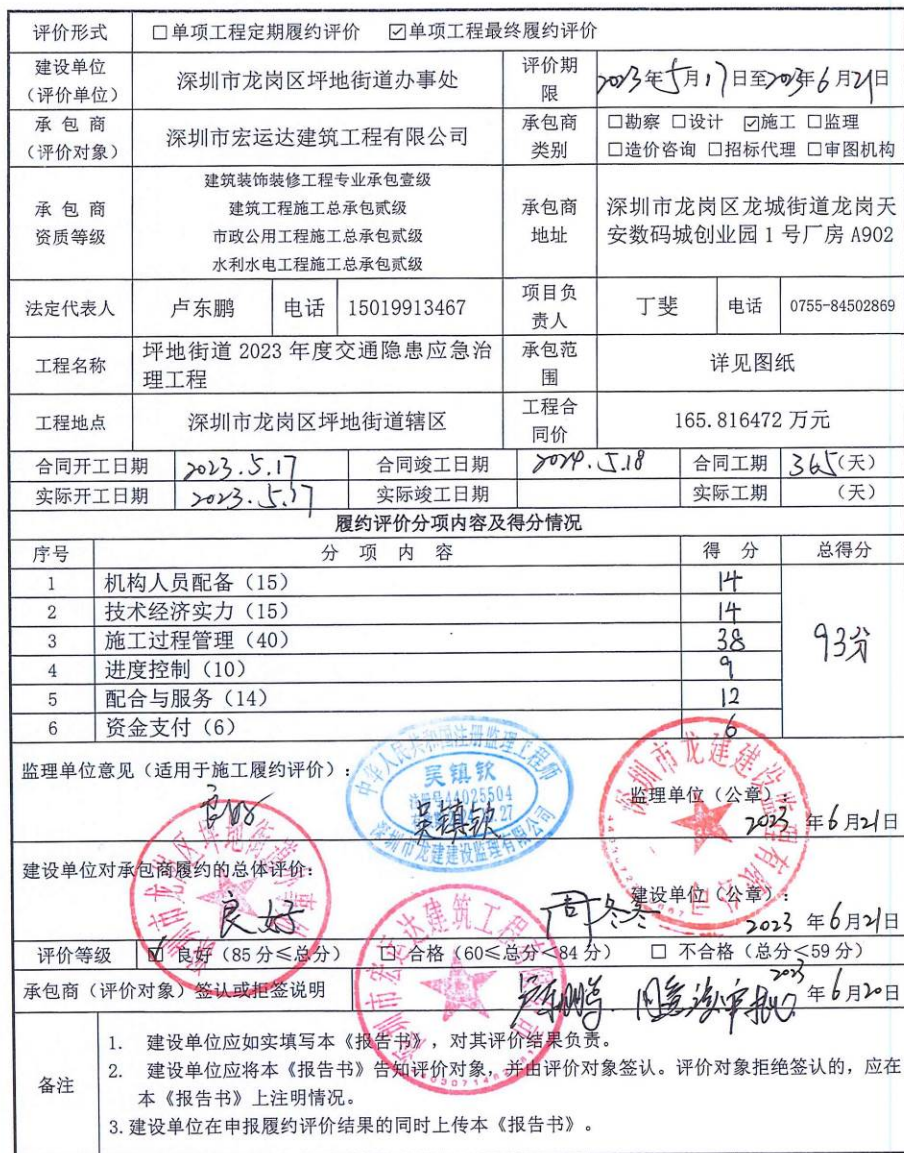 评价形式 □单项工程定期履约评价 ☑单项工程最终履约评价
建设单位（评价单位） 深圳市龙岗区坪地街道办事处 评价期限 2023年5月17日至2023年6月21日
承包商（评价对象） 深圳市宏运达建筑工程有限公司 承包商类别 □勘察 □设计 ☑施工 □监理
□造价咨询 □招标代理 □审图机构
承包商资质等级 建筑装饰装修工程专业承包壹级
建筑工程施工总承包贰级
市政公用工程施工总承包贰级
水利水电工程施工总承包贰级
承包商地址 深圳市龙岗区龙城街道龙岗天
安数码城创业园1号厂房A902
法定代表人 卢东鹏 电话 15019913467 项目负责人 丁斐 电话 0755-84502869
工程名称 坪地街道2023年度交通隐患应急治
理工程 承包范围 详见图纸
工程地点 深圳市龙岗区坪地街道辖区 工程合同价 165.816472万元
合同开工日期 2023.5.17 合同竣工日期 2024.5.18 合同工期 365(天)
实际开工日期 2023.5.17 实际竣工日期 实际工期 （天）
履约评价分项内容及得分情况
序号 分项内容 得分 总得分
1 机构人员配备（15） 14
2 技术经济实力（15） 14
3 施工过程管理（40） 38 93分
4 进度控制（10） 9
5 配合与服务（14） 12
6 资金支付（6） 6
监理单位意见（适用于施工履约评价）：
中华人民共和国注册监理工程师
吴镇钦
44025504
深圳市龙建建设监理有限公司
良好 吴镇钦
监理单位（公章）：
2023年6月21日
深圳市龙建建设监理有限公司
建设单位对承包商履约的总体评价：
良好
建设单位（公章）：
2023年6月21日
深圳市龙岗区坪地街道办事处
评价等级 ☑ 良好（85分≤总分） □ 合格（60≤总分<84分） □ 不合格（总分<59分）
承包商（评价对象）签认或拒签说明 2023年6月20日
深圳市宏运达建筑工程有限公司
备注 1. 建设单位应如实填写本《报告书》，对其评价结果负责。
2. 建设单位应将本《报告书》告知评价对象，并由评价对象签认。评价对象拒绝签认的，应在
本《报告书》上注明情况。
3.建设单位在申报履约评价结果的同时上传本《报告书》。